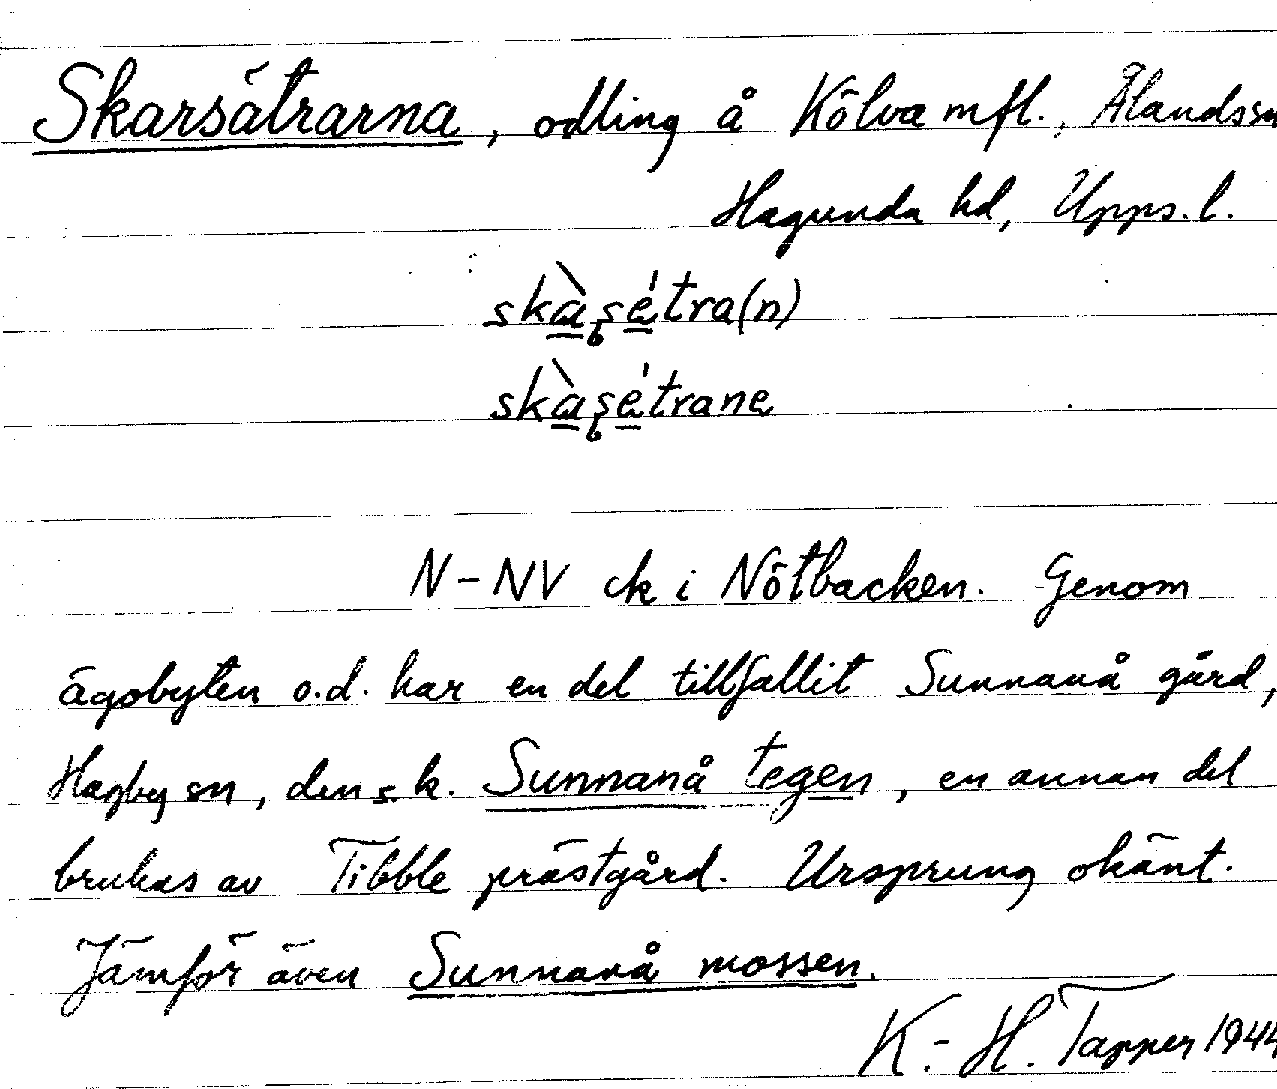 Skarsätrarna, odling å Kölva mfl., Ålandssn
Hagunda hd, Upps. l.
skàşétra(n)
skàşétrane
N-NV ck i Nötbacken. Genom
ägobyten o.d. har en del tillfallit Sunnanå gård,
Hagby sn, den s.k. Sunnanå tegen, en annan del
brukas av Tibble prästgård. Ursprung okänt.
Jämför även Sunnanå mossen.
K.-H. Tapper 1944